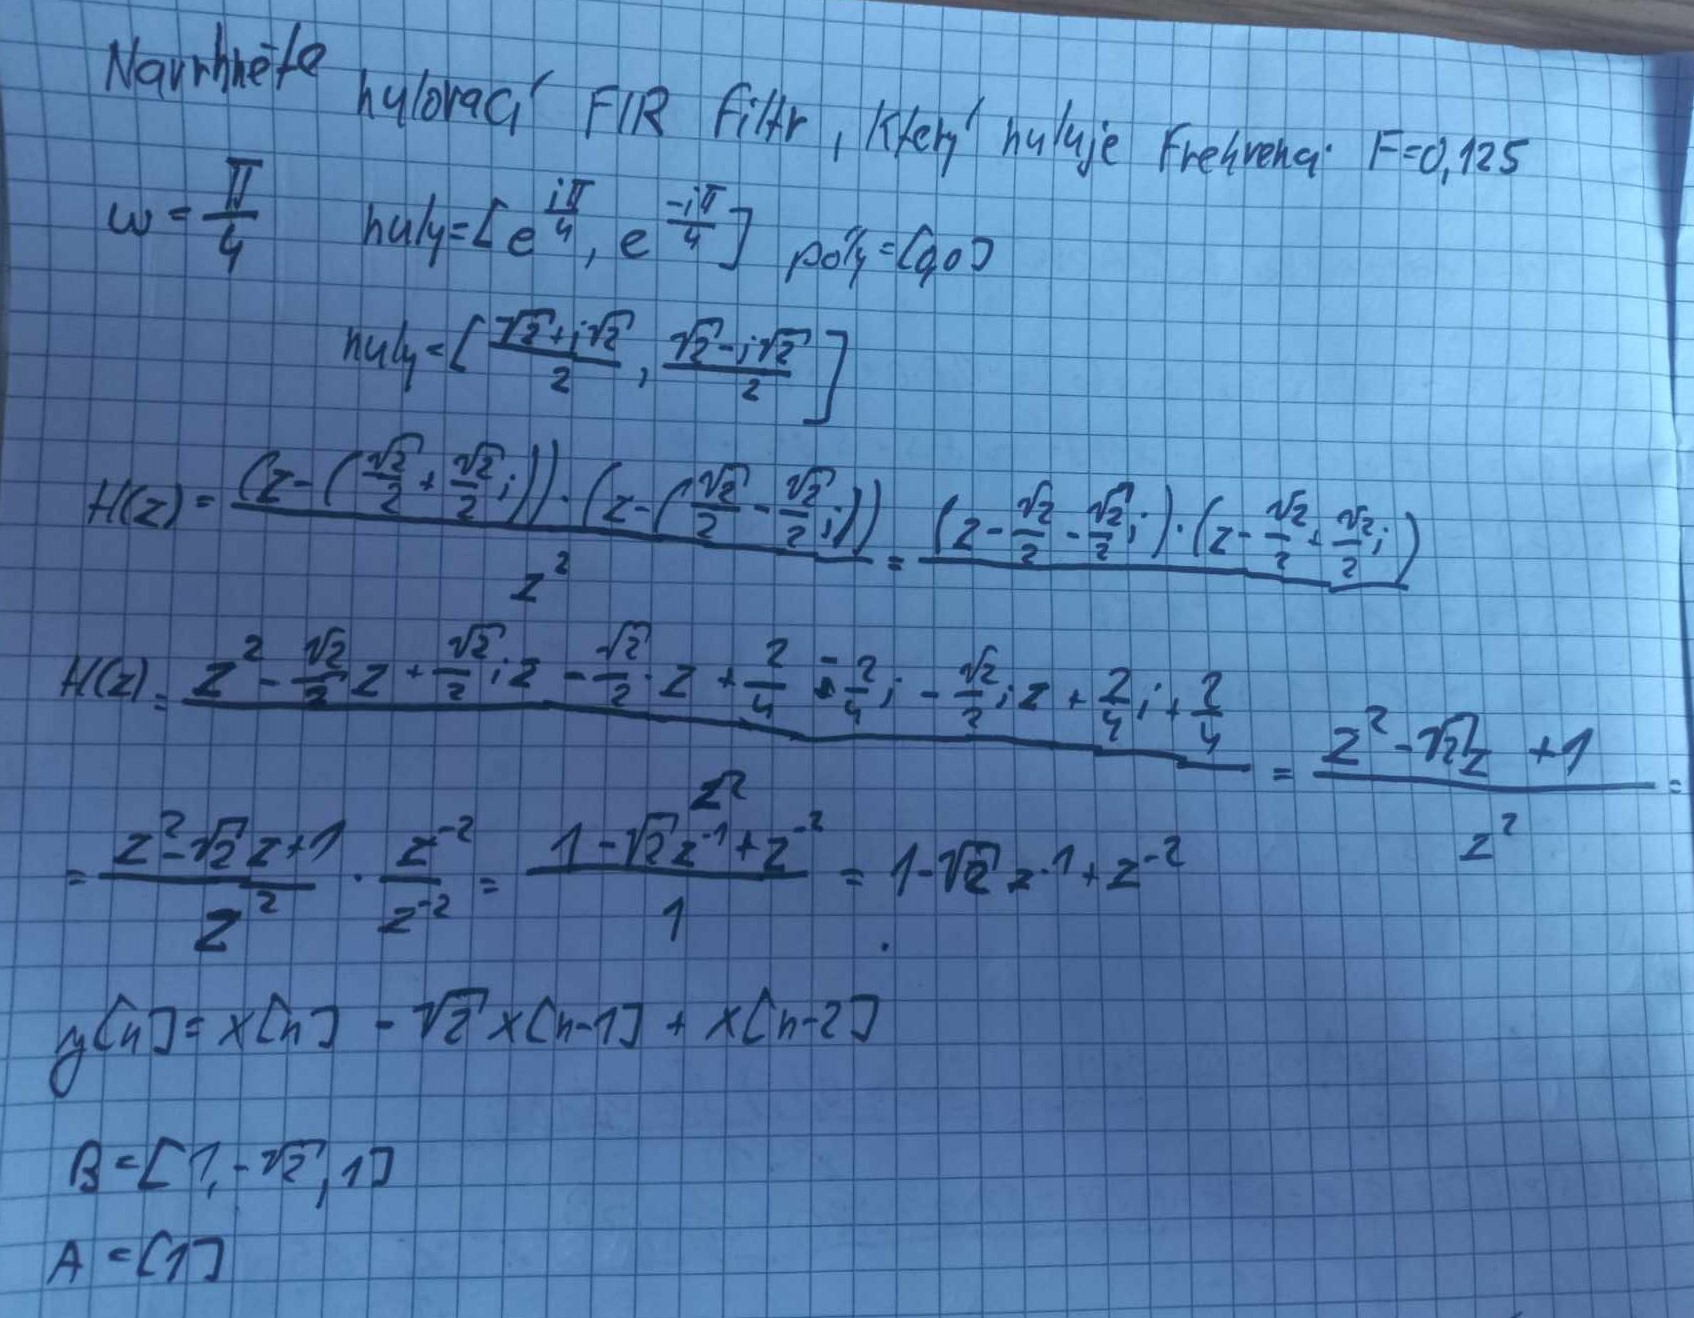 Navrhněte nulovací FIR filtr, který nuluje frekvenci F=0,125
ω = π/4 nuly=[e^(iπ/4), e^(-iπ/4)] póly=[0,0]
nuly=[(√2+i√2)/2, (√2-i√2)/2]
H(z) = ((z-(√2/2+√2/2 i))·(z-(√2/2-√2/2 i)))/z² = (z-√2/2-√2/2 i)·(z-√2/2+√2/2 i)
H(z) = (z²-√2/2 z+√2/2 i z-√2/2·z+2/4-2/4 i-√2/2 i z+2/4 i+2/4)/z² = (z²-√2z+1)/z² =
= (z²-√2z+1)/z² · z⁻²/z⁻² = (1-√2z⁻¹+z⁻²)/1 = 1-√2z⁻¹+z⁻²
y[n]=x[n] - √2 x[n-1] + x[n-2]
B=[1,-√2,1]
A=[1]